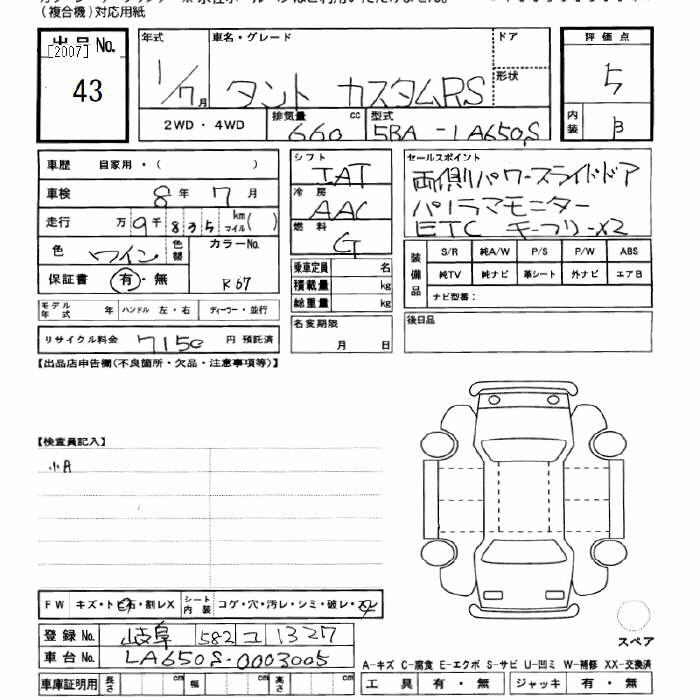 (複合機)対応用紙
出品No.
[2007]
43
年式
1/7月
車名・グレード
タント カスタムRS
ドア
形状
評価点
5
内装
B
2WD・4WD
排気量 cc
660
型式
5BA-LA650S
車歴 自家用・( )
車検 8年 7月
走行 万9千835 km マイル( )
色 ワイン
色替
カラーNo.
R67
保証書 有・無
モデル年式 年 ハンドル 左・右 ディーラー・並行
リサイクル料金 7150 円 預託済
シフト
IAT
冷房
AAC
燃料
G
乗車定員 名
積載量 kg
総重量 kg
名変期限
月 日
セールスポイント
両側パワースライドドア
パノラマモニター
ETC キーフリーx2
装備品
S/R 純A/W P/S P/W ABS
純TV 純ナビ 革シート 外ナビ エアB
ナビ型番:
後日品
【出品店申告欄(不良箇所・欠品・注意事項等)】
【検査員記入】
小A
FW キズ・トビ石・割レX シート内装 コゲ・穴・汚レ・シミ・破レ・スレ
登録No. 岐阜 582 コ 1327
車台No. LA650S-0003005
車庫証明用 長さ cm 幅 cm 高さ cm
スペア
A-キズ C-腐食 E-エクボ S-サビ U-凹ミ W-補修 XX-交換済
工具 有・無 ジャッキ 有・無